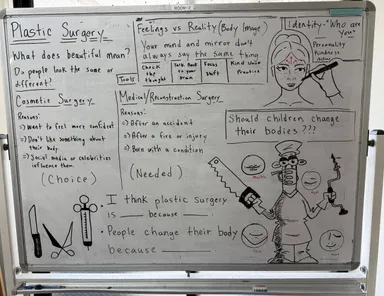 Plastic Surgery
What does beautiful mean?
Do people look the same or
different?
Cosmetic Surgery
Reasons:
⇒ Want to feel more confident
⇒ Don't like something about
their body
⇒ Social media or celebrities
influence them
(Choice)
Feelings vs Reality (Body Image)
Your mind and mirror don't
always say the same thing
Tools
Check
the
thought
Talk Back
to your
brain
Focus
Shift
Kind Voice
Practice
Identity - "Who are
you"
Personality
Kindness
Medical/Reconstruction Surgery
Reasons:
⇒ After an accident
⇒ After a fire or injury
⇒ Born with a condition
(Needed)
Should children change
their bodies ???
• I think plastic surgery
is ____ because ____.
• People change their body
because ____